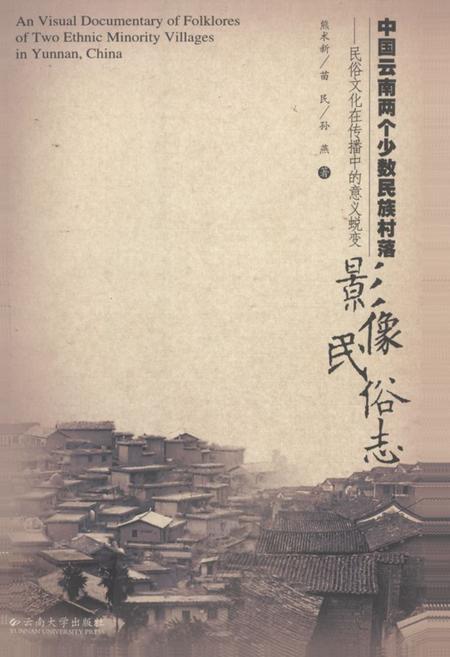 An Visual Documentary of Folklores
of Two Ethnic Minority Villages
in Yunnan, China
中国云南两个少数民族村落
影像民俗志
——民俗文化在传播中的意义蜕变
熊术新/苗 民/孙 燕 著
云南大学出版社
YUNNAN UNIVERSITY PRESS